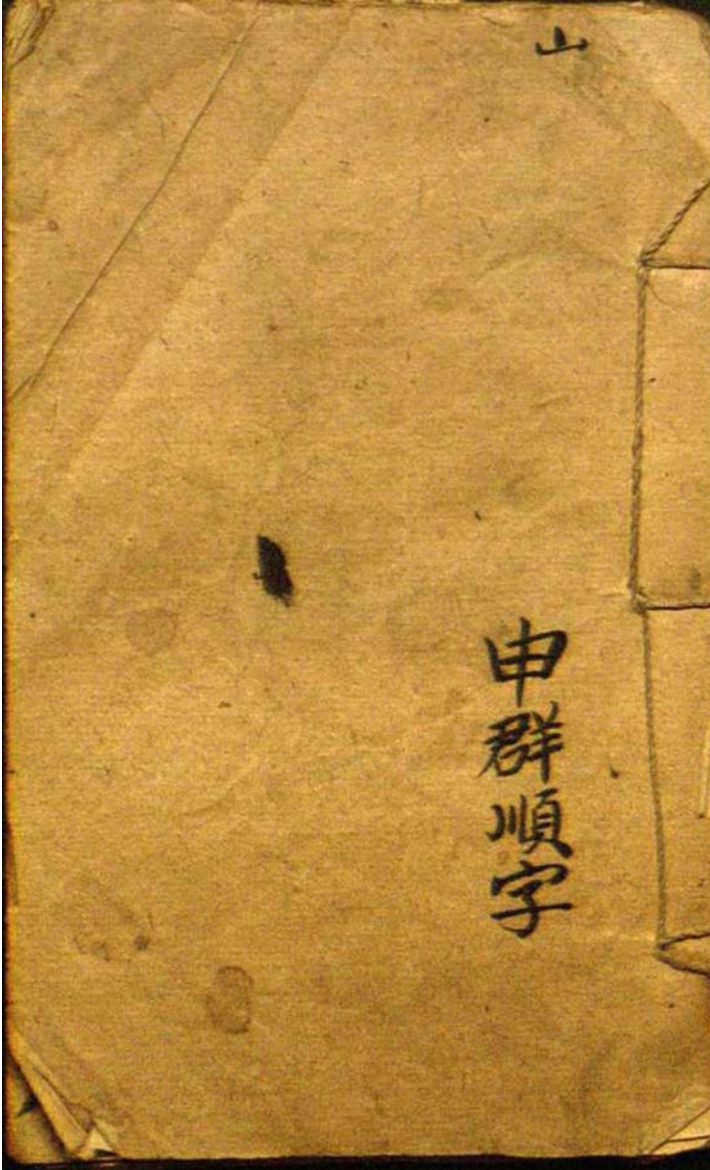 山
申群順字